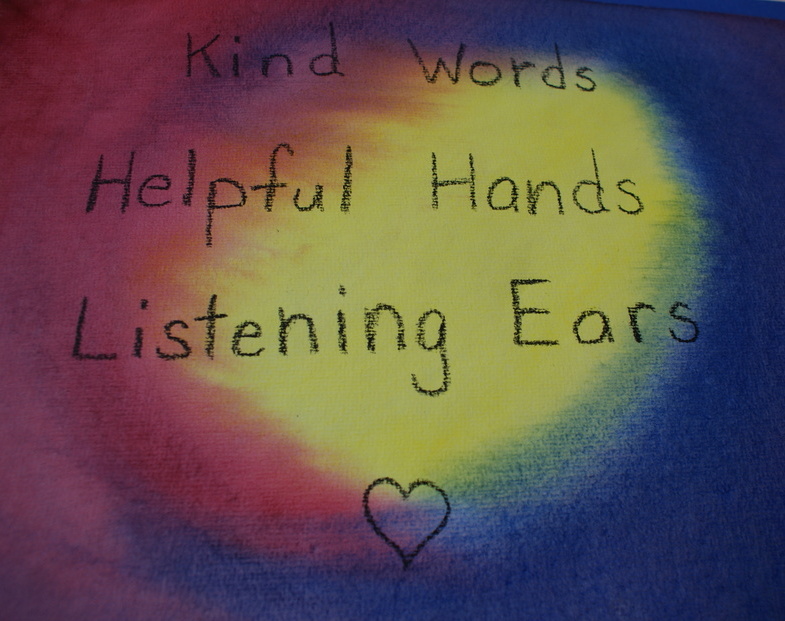 Kind Words
Helpful Hands
Listening Ears